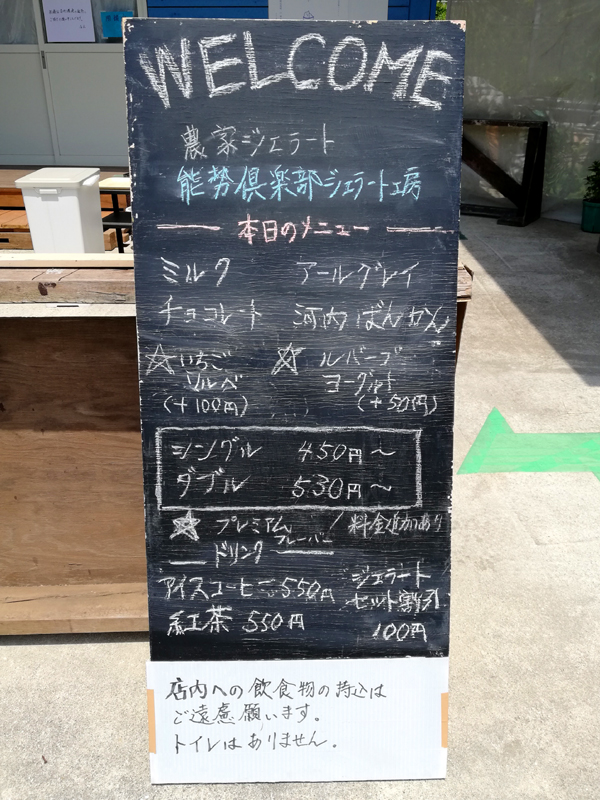 WELCOME
農家ジェラート
能勢倶楽部ジェラート工房
本日のメニュー
ミルク アールグレイ
チョコレート 河内ばんかん
☆いちご ☆ルバーブ
ソルベ ヨーグルト
(+100円) (+50円)
シングル 450円〜
ダブル 530円〜
★プレミアム / 料金追加あり
フレーバー
ドリンク
アイスコーヒー550円 ジェラート
セット割引
紅茶 550円 100円
店内への飲食物の持込は
ご遠慮願います。
トイレはありません。